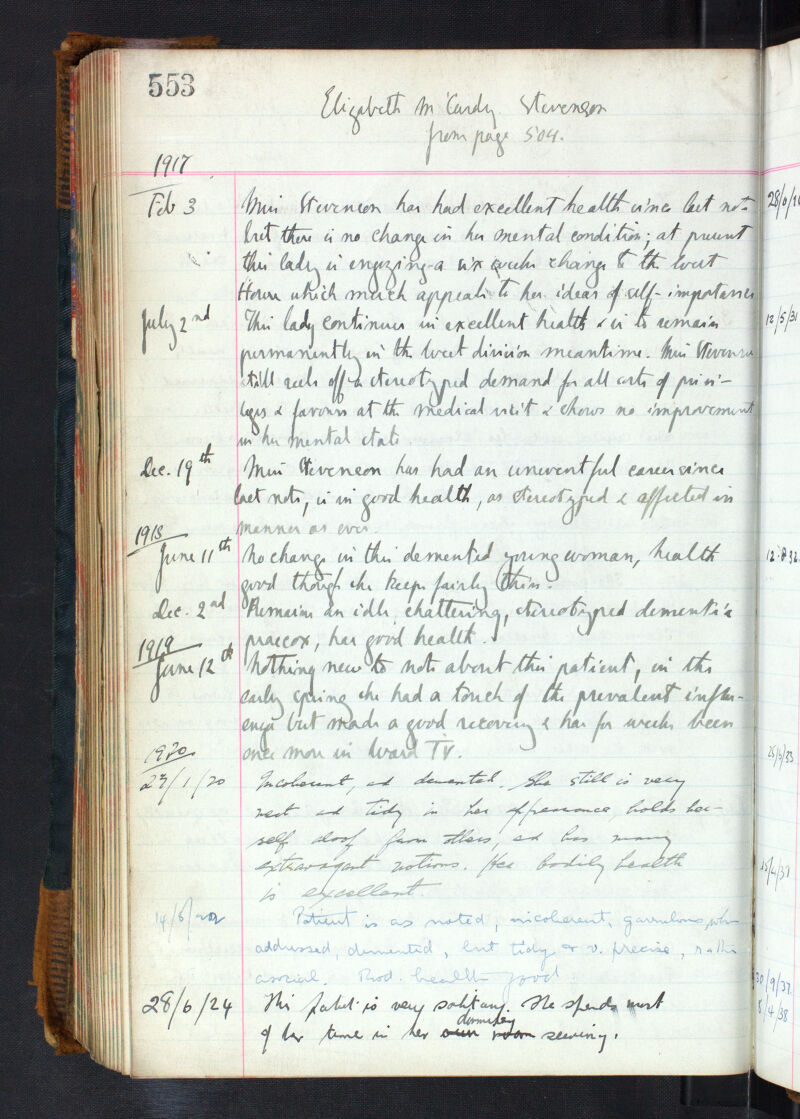 553
Elizabeth McCurdy Stevenson
from page 504.
1917
Feb 3 Miss Stevenson has had excellent health since last note
but there is no change in her mental condition; at present
this lady is enjoying a six weeks change to the West
House which much appeals to her ideas of self-importance
July 2nd This lady continues in excellent health & is to remain
permanently in the West division meantime. Miss Stevenson
still reels off a stereotyped demand for all sorts of privi-
leges & favours at the medical visit & shows no improvement
in her mental state
Dec. 19th Miss Stevenson has had an uneventful career since
last note, is in good health, as stereotyped & affected in
manner as ever.
1918
June 11th No change in this demented young woman, health
good though she keeps fairly thin.
Dec. 2nd Remains an idle, chattering, stereotyped dementia
praecox, has good health.
1919
June 12th Nothing new to note about this patient, in the
early spring she had a touch of the prevalent influ-
enza but made a good recovery & has for weeks been
once more in Ward IV.
1920
/1/20 Incoherent, ad demented. She still is very
neat ad tidy in her appearance, holds her-
self aloof from others, ad has many
extravagant notions. Her bodily health
is excellent.
Patient is as noted, incoherent, garrulous when
addressed, demented, but tidy & v. precise, rather
asocial. Bod. health good
28/6/24 This patet is very solitary. She spends most
of her time in her own room dormitory sewing.
12/5/31
30/9/37
8/4/38